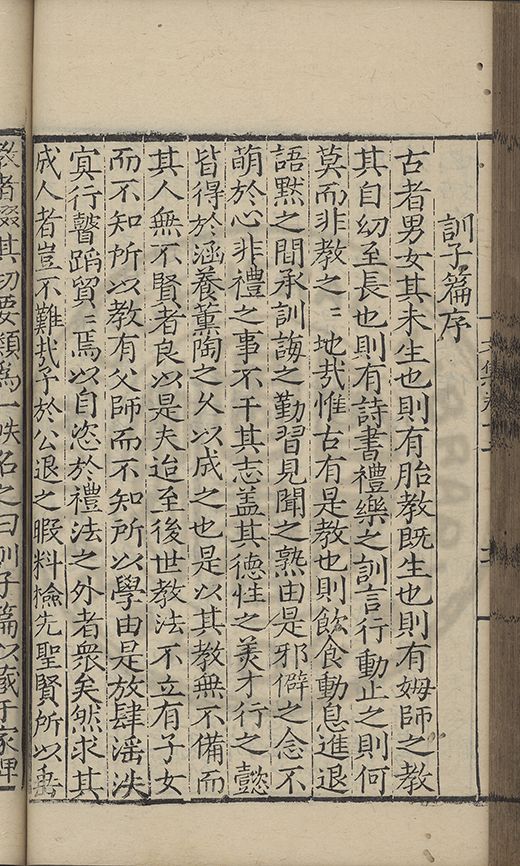 訓子篇序
古者男女其未生也則有胎教既生也則有姆師之教
其自㓜至長也則有詩書禮樂之訓言行動止之則何
莫而非教之〻地㢤惟古有是教也則飲食動息進退
語默之間承訓誨之勤習見聞之熟由是邪僻之念不
萌於心非禮之事不干其志盖其德性之羙才行之懿
皆得於涵養薰陶之久以成之也是以其教無不備而
其人無不賢者良以是夫迨至後世教法不立有子女
而不知所以教有父師而不知所以學由是放肆滛泆
冥行瞽蹈貿〻焉以自恣於禮法之外者衆矣然求其
成人者豈不難㢤予於公退之暇料檢先聖賢所以垂
教者掇其切要類為一帙名之曰訓子篇以藏于家俾